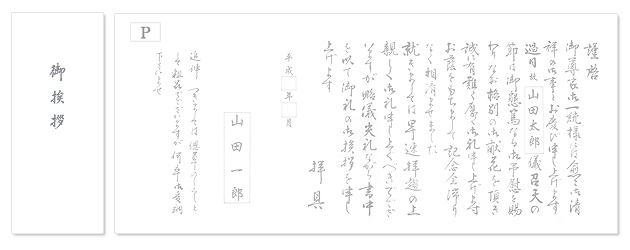 御挨拶
P
謹啓
御尊家御一統様には愈々御清
祥の御事とお慶び申し上げます
過日 故 山田太郎 儀召天の
節は御懇篤なる御弔慰を賜
わりなお格別の御献花を頂き
誠に有難く厚く御礼申し上げます
お蔭をもちまして記念会滞り
なく相済ませました
就きましては早速拝趨の上
親しく御礼申し上ぐべきでござ
いますが略儀失礼ながら書中
を以て御礼の御挨拶を申し
上げます
拝具
平成 年 月
山田一郎
追伸 つきましては
ございますが何卒御受納
下さいませ